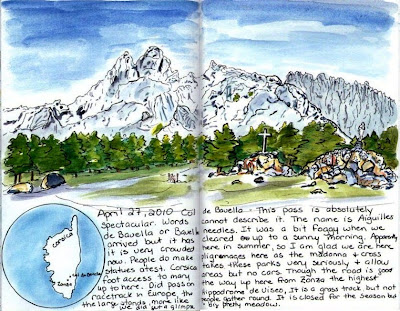 April 27, 2010 Col de Bavella - This pass is absolutely
Spectacular. Words cannot describe it. The name is Aiguilles
de Bavella or Bavella needles. It was a bit foggy when we
arrived but it has cleared up to a sunny morning. Apparently
it is very crowded here in summer, so I am glad we are here
now. People do make pilgramages here as the madonna & cross
statues atest. Corsica takes these parks very seriously & allow
foot access to many areas but no cars. Though the road is good
up to here. Did pass on the way up here from Zonza the highest
racetrack in Europe, the Hippodrome de Viseo, It is a grass track but not
the large stands, more like people gather round. It is closed for the season but
we did get a glimpse pretty meadow.
Corsica
Col de Bavella